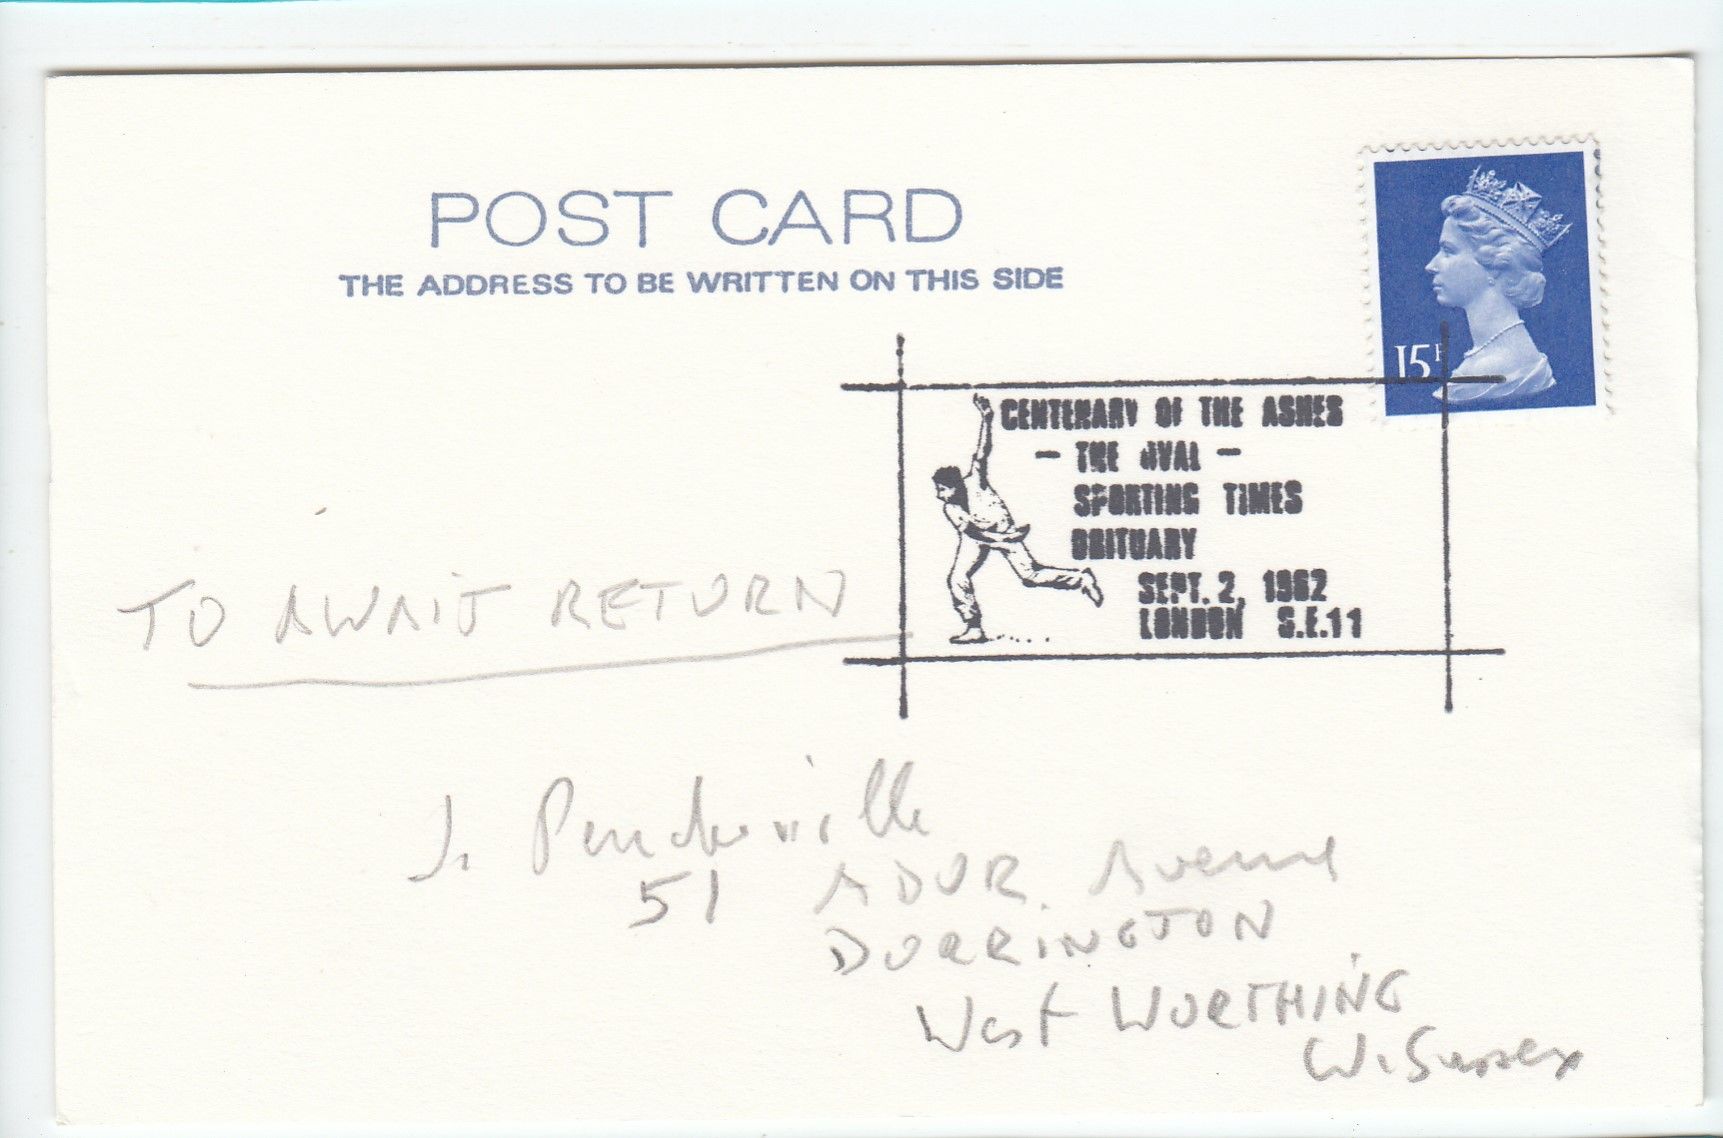 POST CARD
THE ADDRESS TO BE WRITTEN ON THIS SIDE
15P
CENTENARY OF THE ASHES
- THE OVAL -
SPORTING TIMES
OBITUARY
SEPT. 2, 1982
LONDON S.E.11
TO AWAIT RETURN
J. 
51 ADUR Avenue
DURRINGTON
West WORTHING
W. Sussex